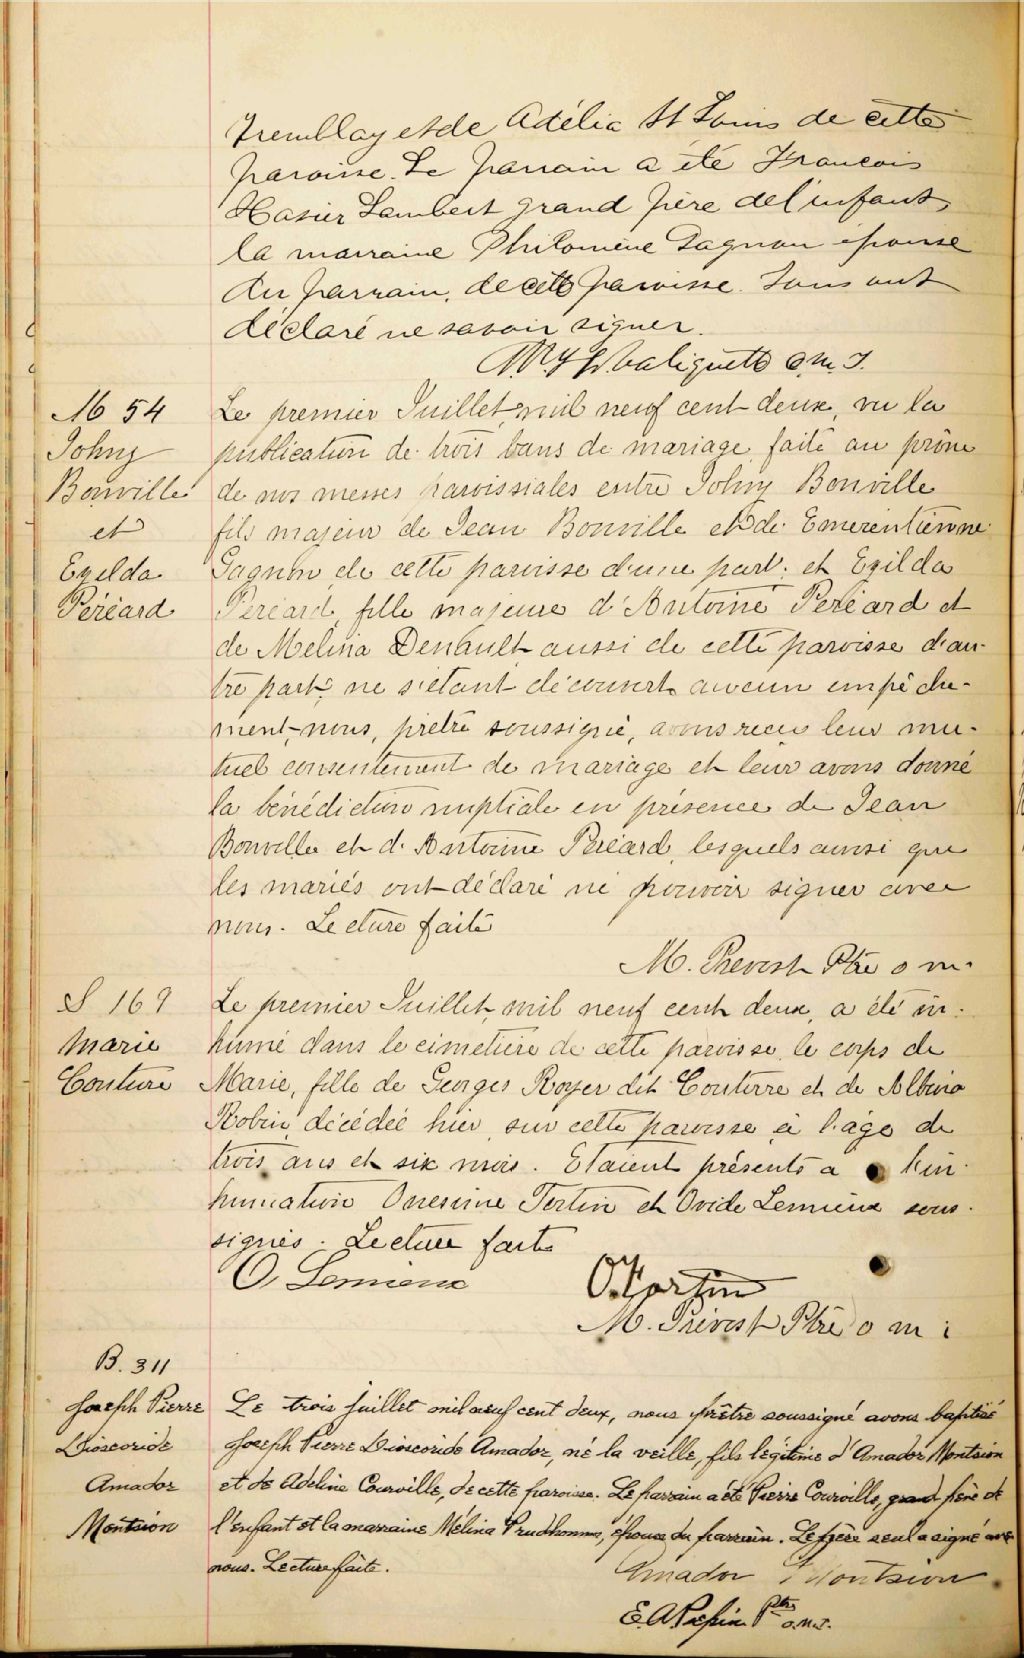 Tremblay et de Adélia St Louis de cette
paroisse. Le parrain a été Francois
Xavier Lambert grand père de l'enfant,
la marraine Philomène Gagnon épouse
du parrain, de cette paroisse. Tous ont
déclaré ne savoir signer.
Valiquette o.m.I.
M 54
Johny
Bonville
et
Ezelda
Péréard
Le premier Juillet, mil neuf cent deux, vu la
publication de trois bans de mariage faite au prône
de nos messes paroissiales entre Johny Bonville
fils majeur de Jean Bonville et de Emerentienne
Gagnon de cette paroisse d'une part; et Ezilda
Peréard, fille majeure d'Antoine Peréard et
de Melina Denault aussi de cette paroisse d'au-
tre part; ne s'étant découvert aucun empêche-
ment, nous, prêtre soussigné, avons recu leur mu-
tuel consentement de mariage et leur avons donné
la bénédiction nuptiale en présence de Jean
Bonville et d'Antoine Peréard, lesquels aussi que
les mariés ont déclaré ne pouvoir signer avec
nous. Lecture faite
M. Prevost Ptre o m.
S 169
Marie
Couture
Le premier Juillet, mil neuf cent deux, a été in-
humé dans le cimetière de cette paroisse le corps de
Marie, fille de Georges Royer dit Couture et de Albina
Robin, décédée hier, sur cette paroisse à l'âge de
trois ans et six mois. Etaient présents a l'in-
humation Onesime Fortin et Ovide Lemieux sous-
signés. Lecture faite
O. Lemieux
O. Fortin
M. Prévost Ptre o m i
B. 311
Joseph Pierre
Dioscoride
Amador
Montsion
Le trois juillet mil neuf cent deux, nous prêtre soussigné avons baptisé
Joseph Pierre Dioscoride Amador, né la veille, fils légitime d'Amador Montsion
et de Adeline Courville, de cette paroisse. Le parrain a été Pierre Courville, grand père de
l'enfant et la marraine Mélina Prudhomme, épouse du parrain. Le père seul a signé avec
nous. Lecture faite.
Amador Montsion
E. A. Pepin Ptre o.m.I.